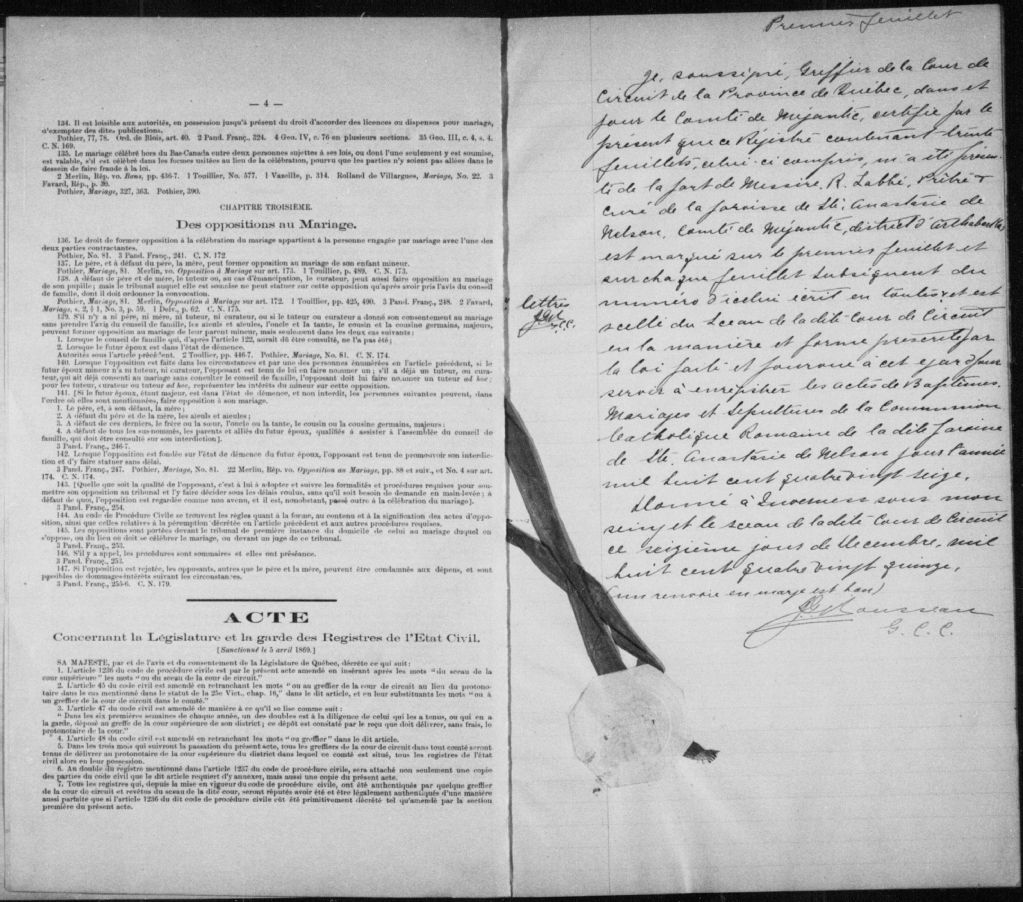 — 4 —
134. Il est loisible aux autorités, en possession jusqu'à présent du droit d'accorder des licences ou dispenses pour mariage,
d'exempter des dites publications.
Pothier, 77, 78. Ord. de Blois, art. 40. 2 Pand. Franç., 324. 4 Geo. IV, c. 76 en plusieurs sections. 35 Geo. III, c. 4, s. 4.
C. N. 169.
135. Le mariage célébré hors du Bas-Canada entre deux personnes sujettes à ses lois, ou dont l'une seulement y est soumise,
est valable, s'il est célébré dans les formes usitées au lieu de la célébration, pourvu que les parties n'y soient pas allées dans le
dessein de faire fraude à la loi.
2 Merlin, Rép. vo. Bans, pp. 436-7. 1 Touillier, No. 577. 1 Vazeille, p. 314. Rolland de Villargues, Mariage, No. 22. 3
Favard, Rép., p. 39.
Pothier, Mariage, 327, 363. Pothier, 390.
CHAPITRE TROISIÈME.
Des oppositions au Mariage.
136. Le droit de former opposition à la célébration du mariage appartient à la personne engagée par mariage avec l'une des
deux parties contractantes.
Pothier, No. 81. 3 Pand. Franç., 241. C. N. 172
137. Le père, et à défaut du père, la mère, peut former opposition au mariage de son enfant mineur.
Pothier, Mariage, 81. Merlin, vo. Opposition à Mariage sur art. 173. 1 Touillier, p. 489. C. N. 173.
138. A défaut de père et de mère, le tuteur ou, au cas d'émancipation, le curateur, peut aussi faire opposition au mariage
de son pupille; mais le tribunal auquel elle est soumise ne peut statuer sur cette opposition qu'après avoir pris l'avis du conseil
de famille, dont il doit ordonner la convocation.
Pothier, Mariage, 81. Merlin, Opposition à Mariage sur art. 172. 1 Touillier, pp. 425, 490. 3 Pand. Franç., 248. 2 Favard,
Mariage, s. 2, § 1, No. 3, p. 59. 1 Delv., p. 62. C. N. 175.
139. S'il n'y a ni père, ni mère, ni tuteur, ni curateur, ou si le tuteur ou curateur a donné son consentement au mariage
sans prendre l'avis du conseil de famille, les aïeuls et aïeules, l'oncle et la tante, le cousin et la cousine germains, majeurs,
peuvent former opposition au mariage de leur parent mineur, mais seulement dans les deux cas suivants :
1. Lorsque le conseil de famille qui, d'après l'article 122, aurait dû être consulté, ne l'a pas été;
2. Lorsque le futur époux est dans l'état de démence.
Autorités sous l'article précédent. 2 Toullier, pp. 446-7. Pothier, Mariage, No. 81. C. N. 174.
140. Lorsque l'opposition est faite dans les circonstances et par une des personnes énumérées en l'article précédent, si le
futur époux mineur n'a ni tuteur, ni curateur, l'opposant est tenu de lui en faire nommer un; s'il a déjà un tuteur, ou cura-
teur, qui ait déjà consenti au mariage sans consulter le conseil de famille, l'opposant doit lui faire nommer un tuteur ad hoc;
pour les tuteur, curateur ou tuteur ad hoc, représenter les intérêts du mineur sur cette opposition.
141. [Si le futur époux, étant majeur, est dans l'état de démence, et non interdit, les personnes suivantes peuvent, dans
l'ordre où elles sont mentionnées, faire opposition à son mariage.
1. Le père, et, à son défaut, la mère;
2. A défaut du père et de la mère, les aïeuls et aïeules;
3. A défaut de ces derniers, le frère ou la sœur, l'oncle ou la tante, le cousin ou la cousine germains, majeurs:
4. A défaut de tous les sus-nommés, les parents et alliés du futur époux, qualifiés à assister à l'assemblée du conseil de
famille, qui doit être consulté sur son interdiction].
3 Pand. Franç., 246-7.
142. Lorsque l'opposition est fondée sur l'état de démence du futur époux, l'opposant est tenu de promouvoir son interdic-
tion et d'y faire statuer sans délai.
3 Pand. Franç., 247. Pothier, Mariage, No. 81. 22 Merlin, Rép. vo. Opposition au Mariage, pp. 88 et suiv., et No. 4 sur art.
174. C. N. 174.
143. [Quelle que soit la qualité de l'opposant, c'est à lui à adopter et suivre les formalités et procédures requises pour sou-
mettre son opposition au tribunal et l'y faire décider sous les délais voulus, sans qu'il soit besoin de demande en main-levée; à
défaut de quoi, l'opposition est regardée comme non avenue, et il est, nonobstant, passé outre à la célébration du mariage].
3 Pand. Franç., 254.
144. Au code de Procédure Civile se trouvent les règles quant à la forme, au contenu et à la signification des actes d'oppo-
sition, ainsi que celles relatives à la péremption décrétée en l'article précédent et aux autres procédures requises.
145. Les oppositions sont portées devant le tribunal de première instance du domicile de celui au mariage duquel on
s'oppose, ou du lieu où doit se célébrer le mariage, ou devant un juge de ce tribunal.
3 Pand. Franç., 253.
146. S'il y a appel, les procédures sont sommaires et elles ont préséance.
3 Pand. Franç., 253.
147. Si l'opposition est rejetée, les opposants, autres que le père et la mère, peuvent être condamnés aux dépens, et sont
passibles de dommages-intérêts suivant les circonstances.
3 Pand. Franç., 255-6. C. N. 179.
ACTE
Concernant la Législature et la garde des Registres de l'Etat Civil.
[Sanctionné le 5 avril 1869.]
SA MAJESTE, par et de l'avis et du consentement de la Législature de Québec, décrète ce qui suit:
1. L'article 1236 du code de procédure civile est par le présent acte amendé en insérant après les mots "du sceau de la
cour supérieure" les mots "ou du sceau de la cour de circuit."
2. L'article 45 du code civil est amendé en retranchant les mots "ou au greffier de la cour de circuit au lieu du protono-
taire dans le cas mentionné dans le statut de la 25e Vict., chap. 16," dans le dit article, et en leur substituant les mots "ou à
un greffier de la cour de circuit dans le comté."
3. L'article 47 du code civil est amendé de manière à ce qu'il se lise comme suit:
"Dans les six premières semaines de chaque année, un des doubles est à la diligence de celui qui les a tenus, ou qui en a
la garde, déposé au greffe de la cour supérieure de son district; ce dépôt est constaté par le reçu que doit délivrer, sans frais, le
protonotaire de la cour."
4. L'article 48 du code civil est amendé en retranchant les mots "ou greffier" dans le dit article.
5. Dans les trois mois qui suivront la passation du présent acte, tous les greffiers de la cour de circuit dans tout comté seront
tenus de délivrer au protonotaire de la cour supérieure du district dans lequel ce comté est situé, tous les registres de l'état
civil alors en leur possession.
6. Au double du registre mentionné dans l'article 1237 du code de procédure civile, sera attaché non seulement une copie
des parties du code civil que le dit article requiert d'y annexer, mais aussi une copie du présent acte.
7. Tous les registres qui, depuis la mise en vigueur du code de procédure civile, ont été authentiqués par quelque greffier
de la cour de circuit et revêtus du sceau de la dite cour, seront réputés avoir été et être légalement authentiqués d'une manière
aussi parfaite que si l'article 1236 du dit code de procédure civile eût été primitivement décrété tel qu'amendé par la section
première du présent acte.
Premier feuillet
Je, soussigné, Greffier de la Cour de
Circuit de la Province de Québec, dans et
pour le Comté de Mégantic, certifie par le
présent que ce Régistre contenant trente
feuillets, celui-ci compris, m'a été présen-
té de la part de Messire R. Labbé, Prêtre &
curé de la paroisse de Ste. Anastasie de
Nelson, Comté de Mégantic, district d'Arthabaska,
est marqué sur le premier feuillet et
sur chaque feuillet subséquent du
numéro d'icelui écrit en toutes x et est
lettres
G.C.C.
scellé du Sceau de la dite Cour de Circuit
en la manière et forme prescrite par
la loi faite et pourvue à cet égard pour
servir à enrégistrer les actes de Baptêmes,
Mariages et Sépultures de la Communion
Catholique Romaine de la dite Paroisse
de Ste. Anastasie de Nelson pour l'année
mil huit cent quatre vingt seize.
Donné à Inverness sous mon
seing et le sceau de la dite Cour de Circuit
ce seizième jour de Décembre, mil
huit cent quatre vingt quinze,
(un renvoie en marge est bon)
Rousseau
G. C. C.